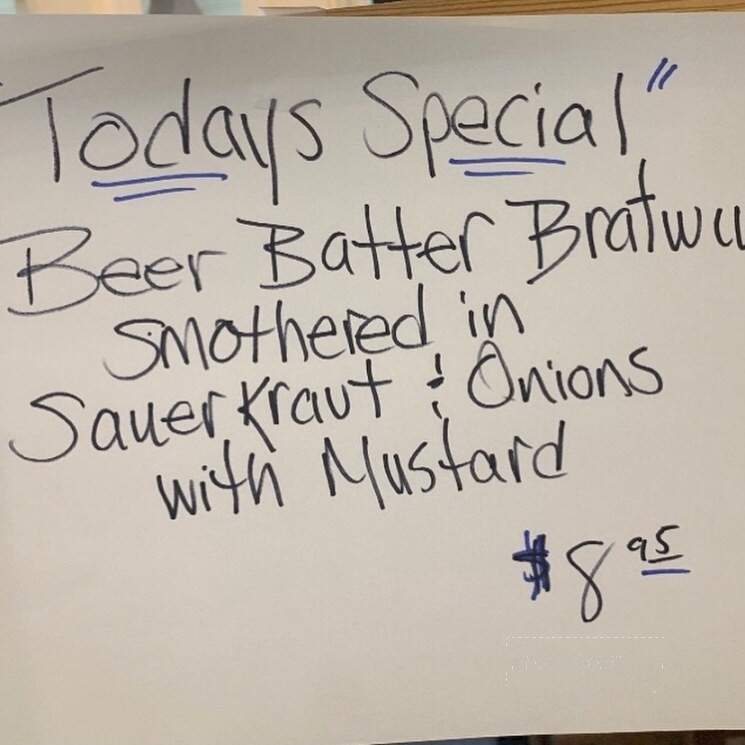 "Todays Special"
Beer Batter Bratwu
smothered in
Sauerkraut & Onions
with Mustard
$8.95